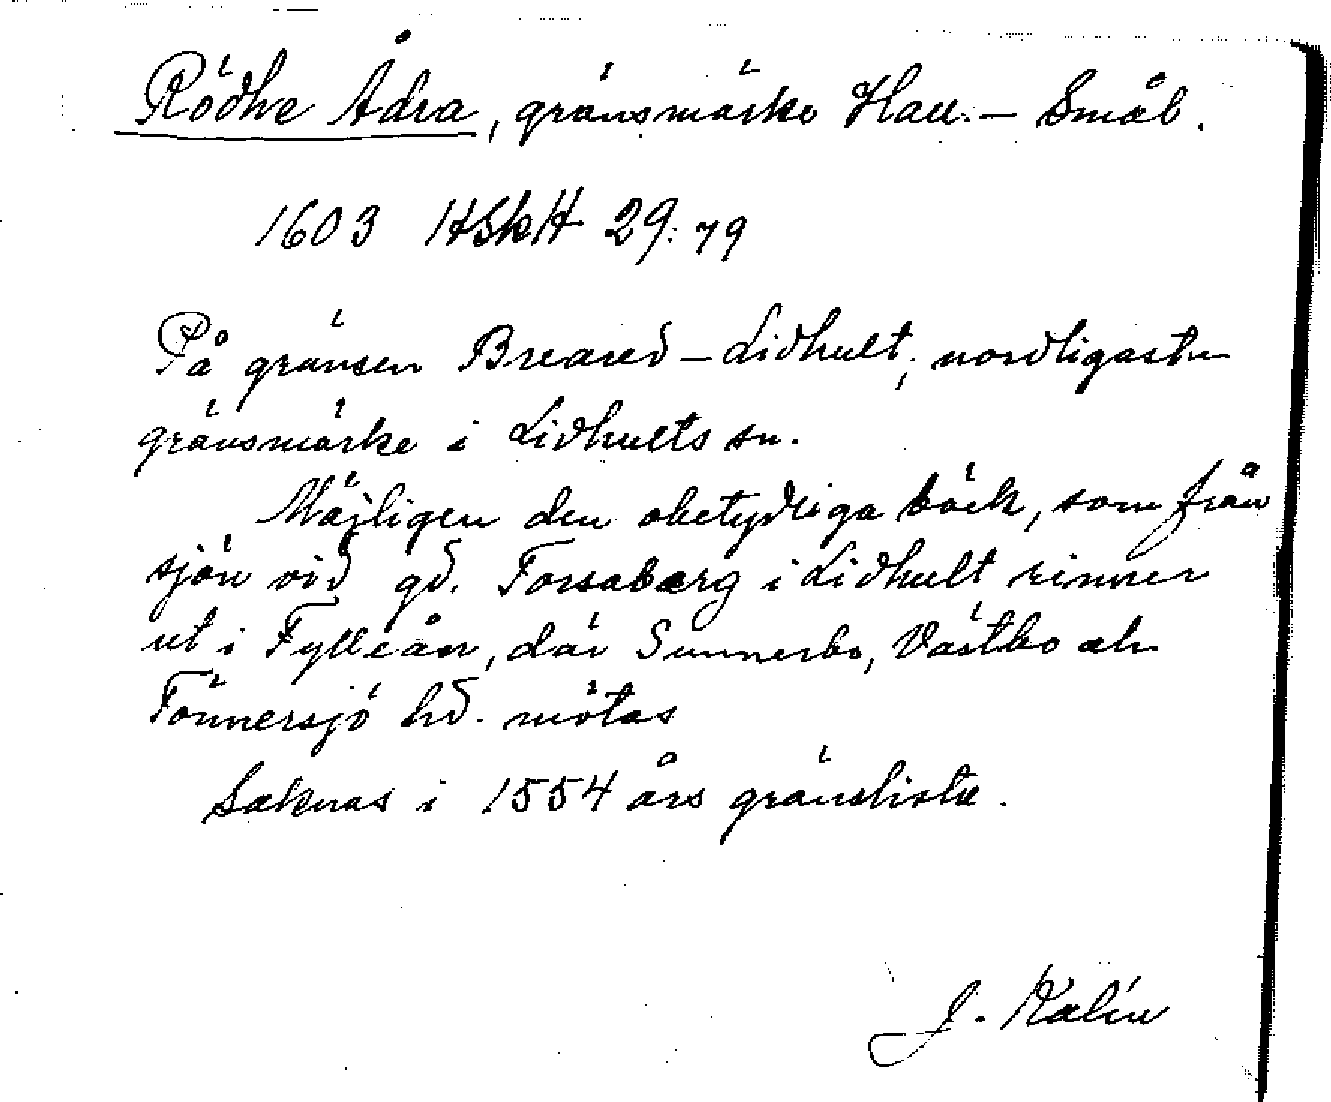 Rödhe Ådra, gränsmärke Hall. – Smål.
1603 HSkH 29: 79
På gränsen Breared – Lidhult, nordligaste
gränsmärke i Lidhults sn.
Möjligen den obetydliga bäck, som från
sjön vid gd. Forsaberg i Lidhult rinner
ut i Fylleån, där Sunnerbo, Västbo och
Tönnersjö hd. mötas
Saknas i 1554 års gränslista.
J. Kalén